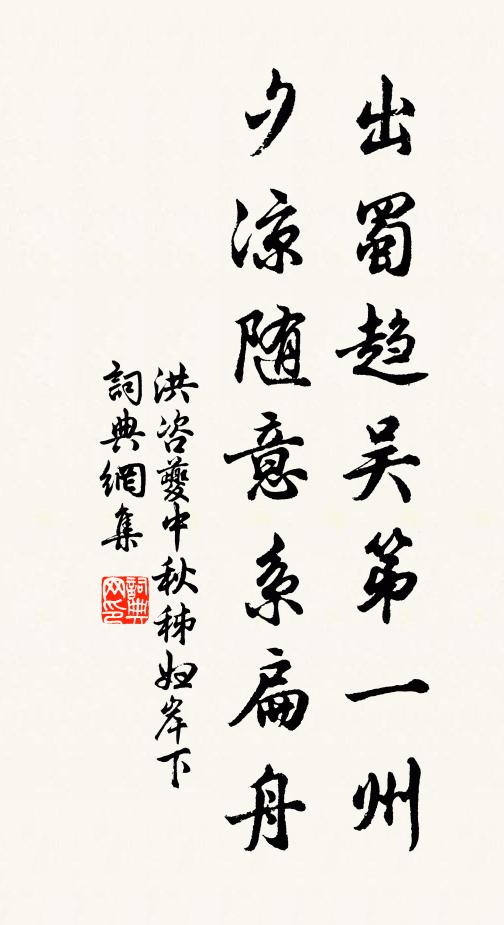 出蜀趋吴第一州
夕凉随意系扁舟
洪咨夔中秋秭归岸下
詞典網集
詞典网印